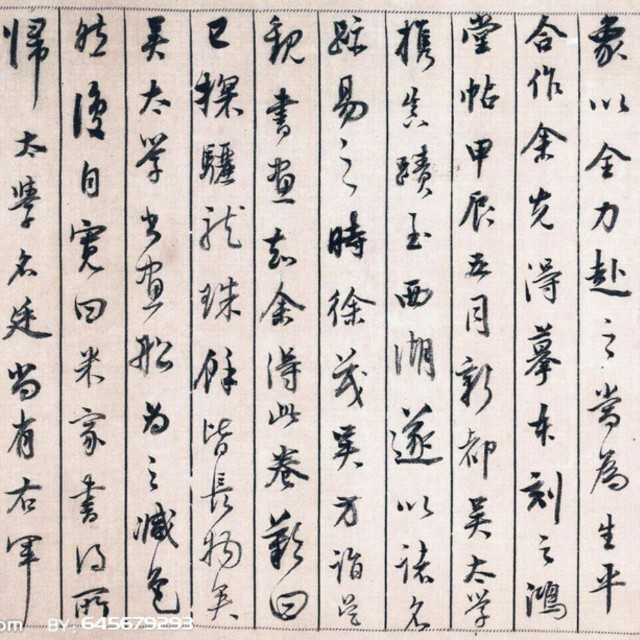 象以全力赴之當為生平
合作余先得摹本刻之鴻
堂帖甲辰五月新都吳太學
攜真蹟至西湖遂以諸名
跡易之時徐茂吳方詣吳
觀書畫知余得此卷歎曰
已探驪龍珠餘皆長物矣
吳太學書畫船為之減色
然復自寬曰米家書得所
歸太學名廷尚有右軍
om BY: 645679293